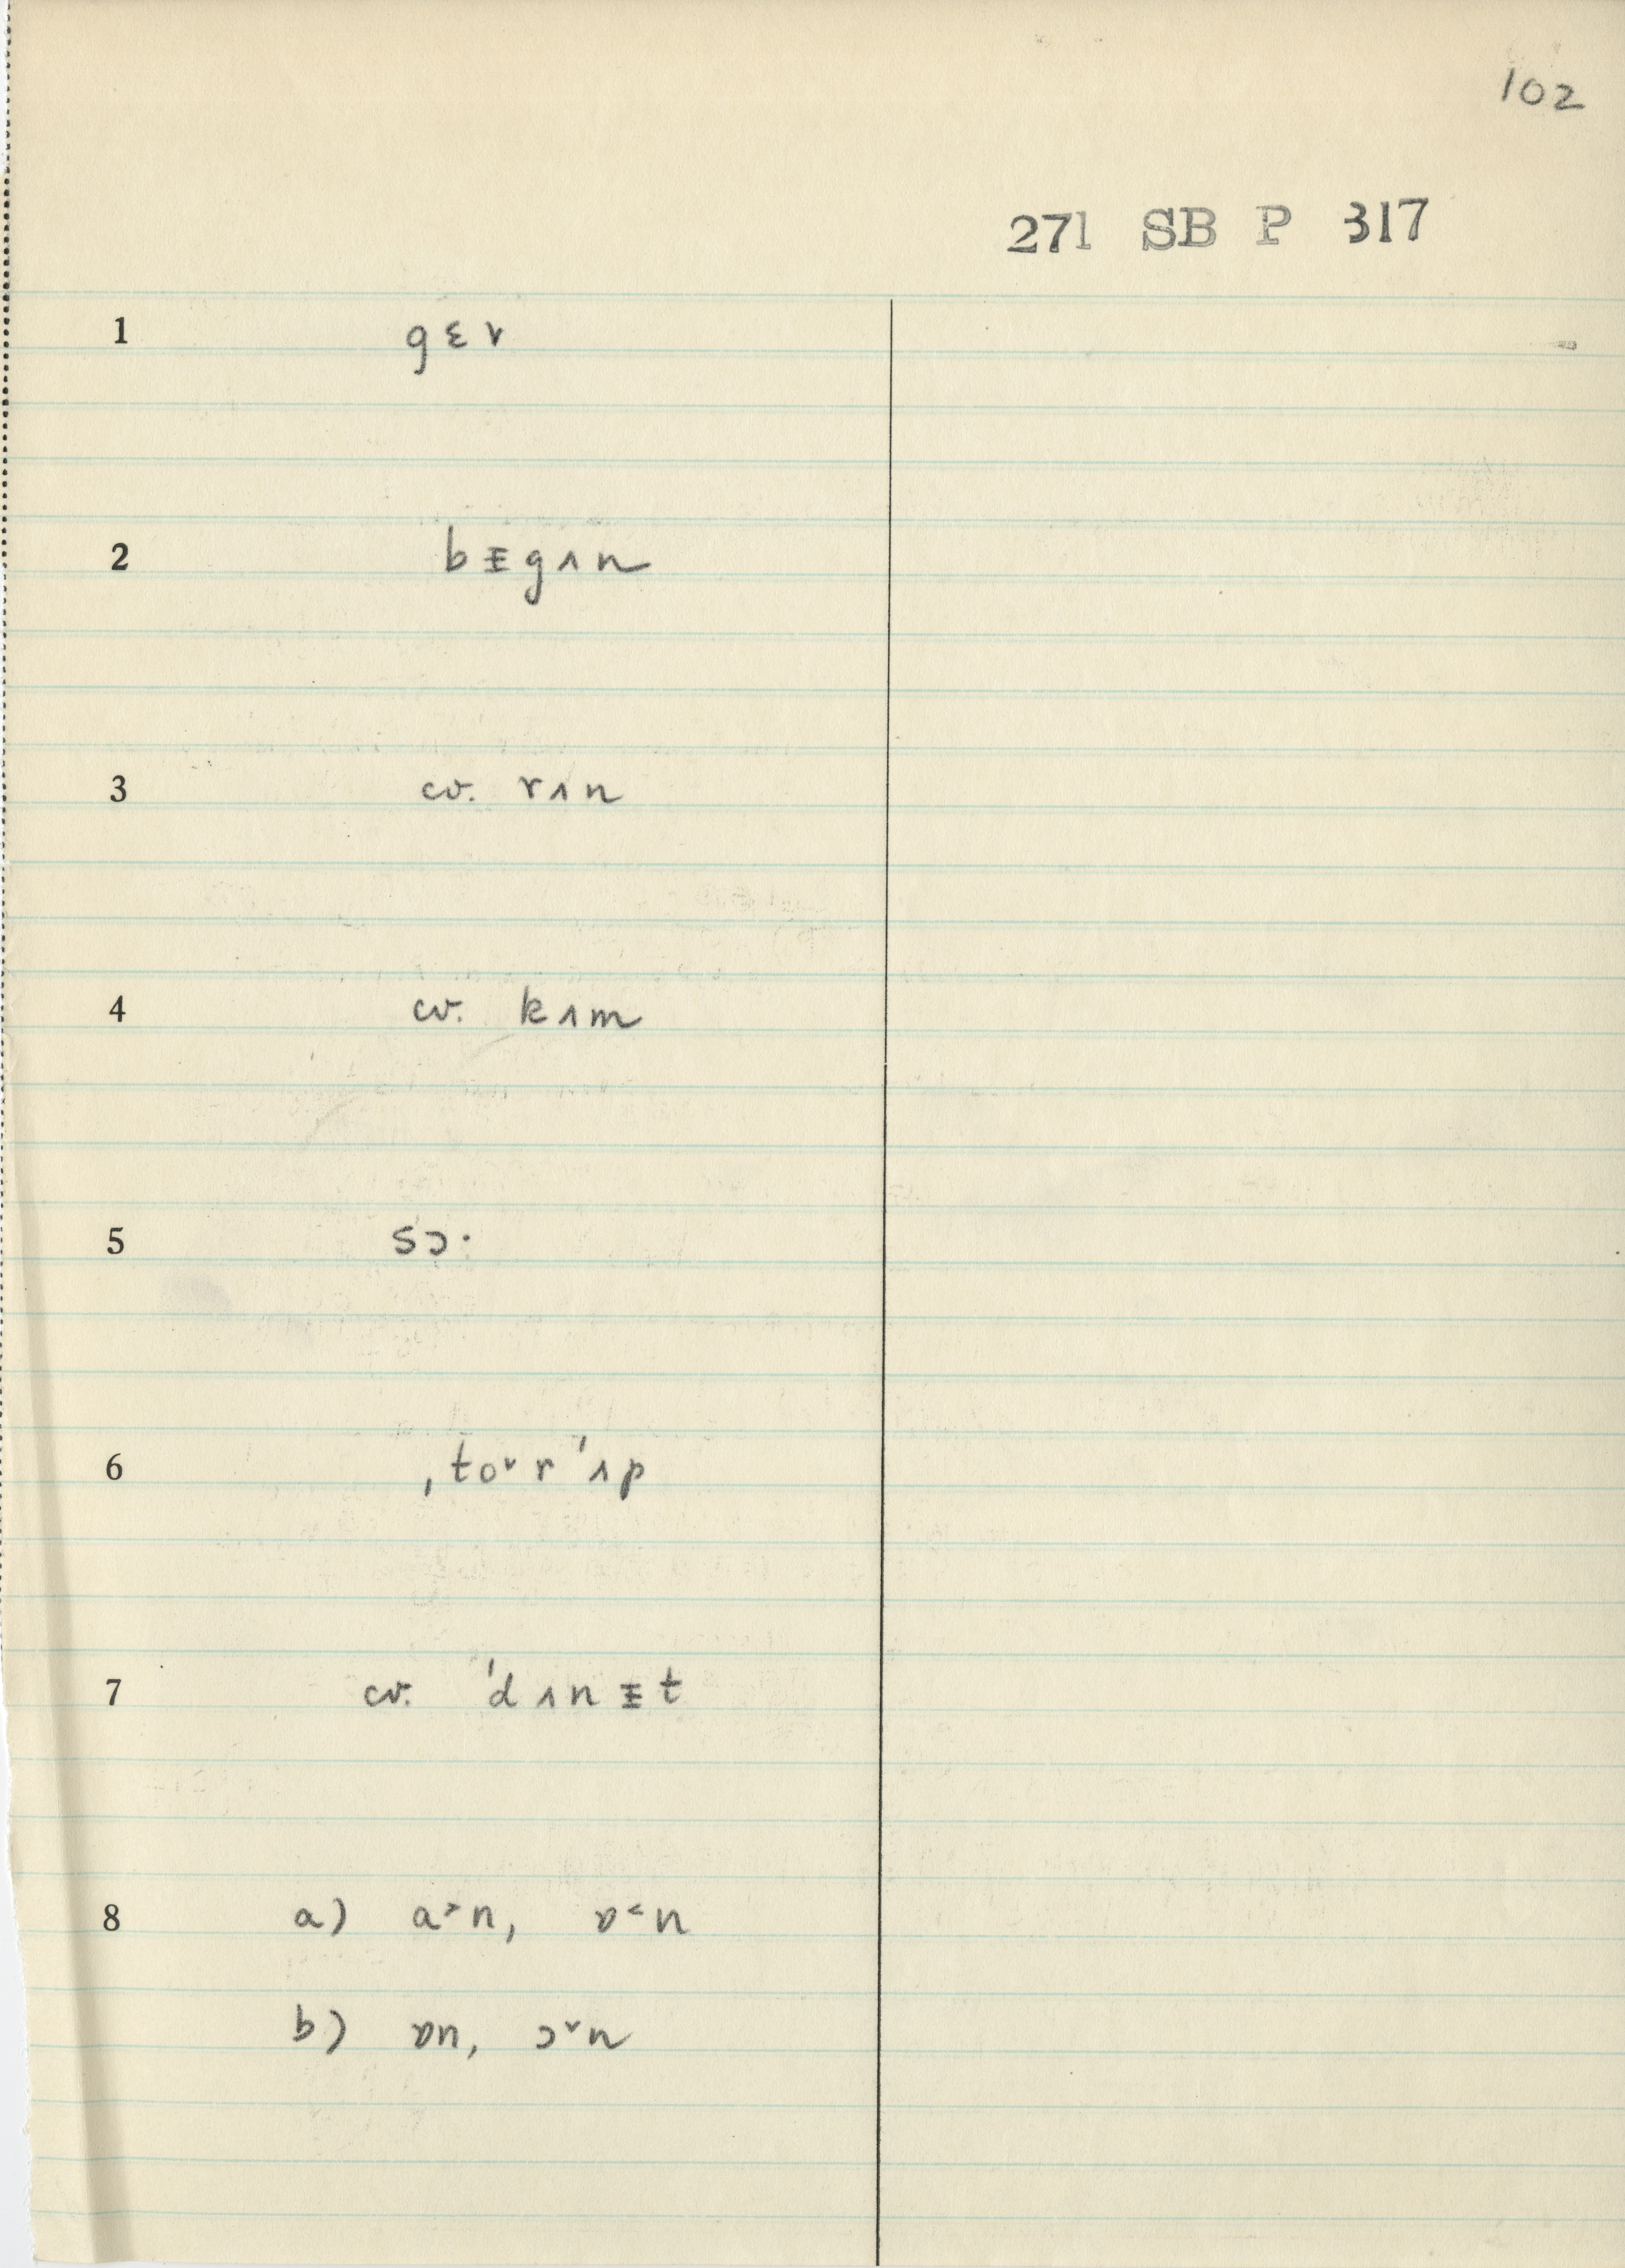 102
271 SB P 317
1 gɛɩ
2 bᵻgʌn
3 cv. rʌn
4 cv. kʌm
5 sɔ·
6 ˌto˅r ˈʌp
7 cv. ˈdʌnᵻt
8 a) a˃n, ɒ˂n
b) ɒn, ɔ˅n